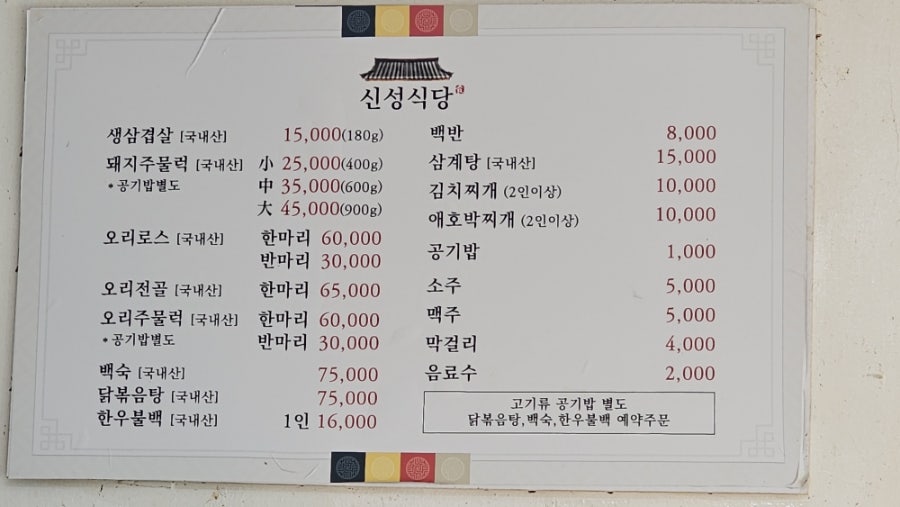 신성식당
생삼겹살 [국내산] 15,000(180g)
돼지주물럭 [국내산] 小 25,000(400g)
*공기밥별도 中 35,000(600g)
大 45,000(900g)
오리로스 [국내산] 한마리 60,000
반마리 30,000
오리전골 [국내산] 한마리 65,000
오리주물럭 [국내산] 한마리 60,000
*공기밥별도 반마리 30,000
백숙 [국내산] 75,000
닭볶음탕 [국내산] 75,000
한우불백 [국내산] 1인 16,000
백반 8,000
삼계탕 [국내산] 15,000
김치찌개 (2인이상) 10,000
애호박찌개 (2인이상) 10,000
공기밥 1,000
소주 5,000
맥주 5,000
막걸리 4,000
음료수 2,000
고기류 공기밥 별도
닭볶음탕,백숙,한우불백 예약주문